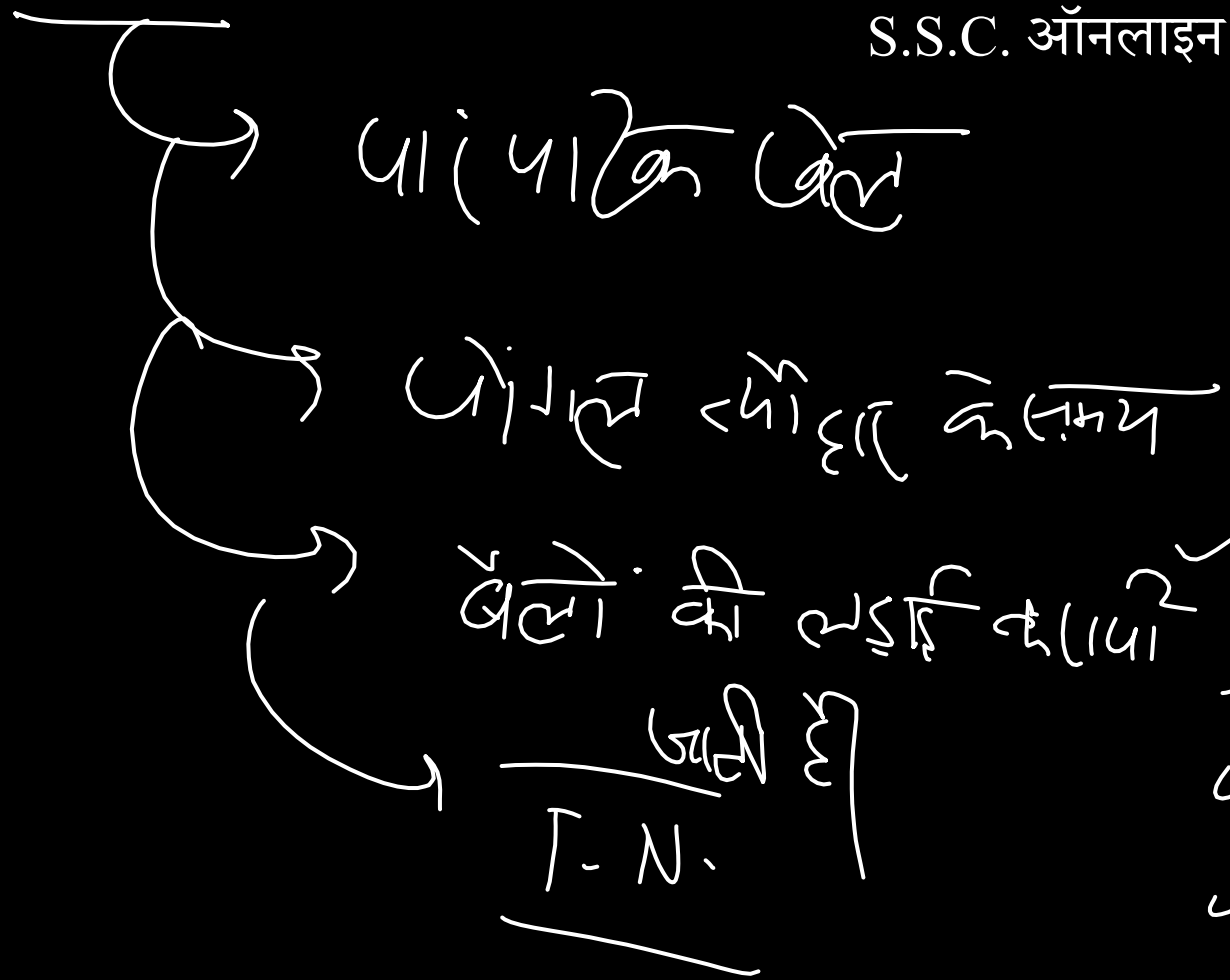 S.S.C. ऑनलाइन
पारंपारिक खेल
पोंगल त्यौहार के समय
बैलों की लड़ाई करायी
जाती है।
T.N.